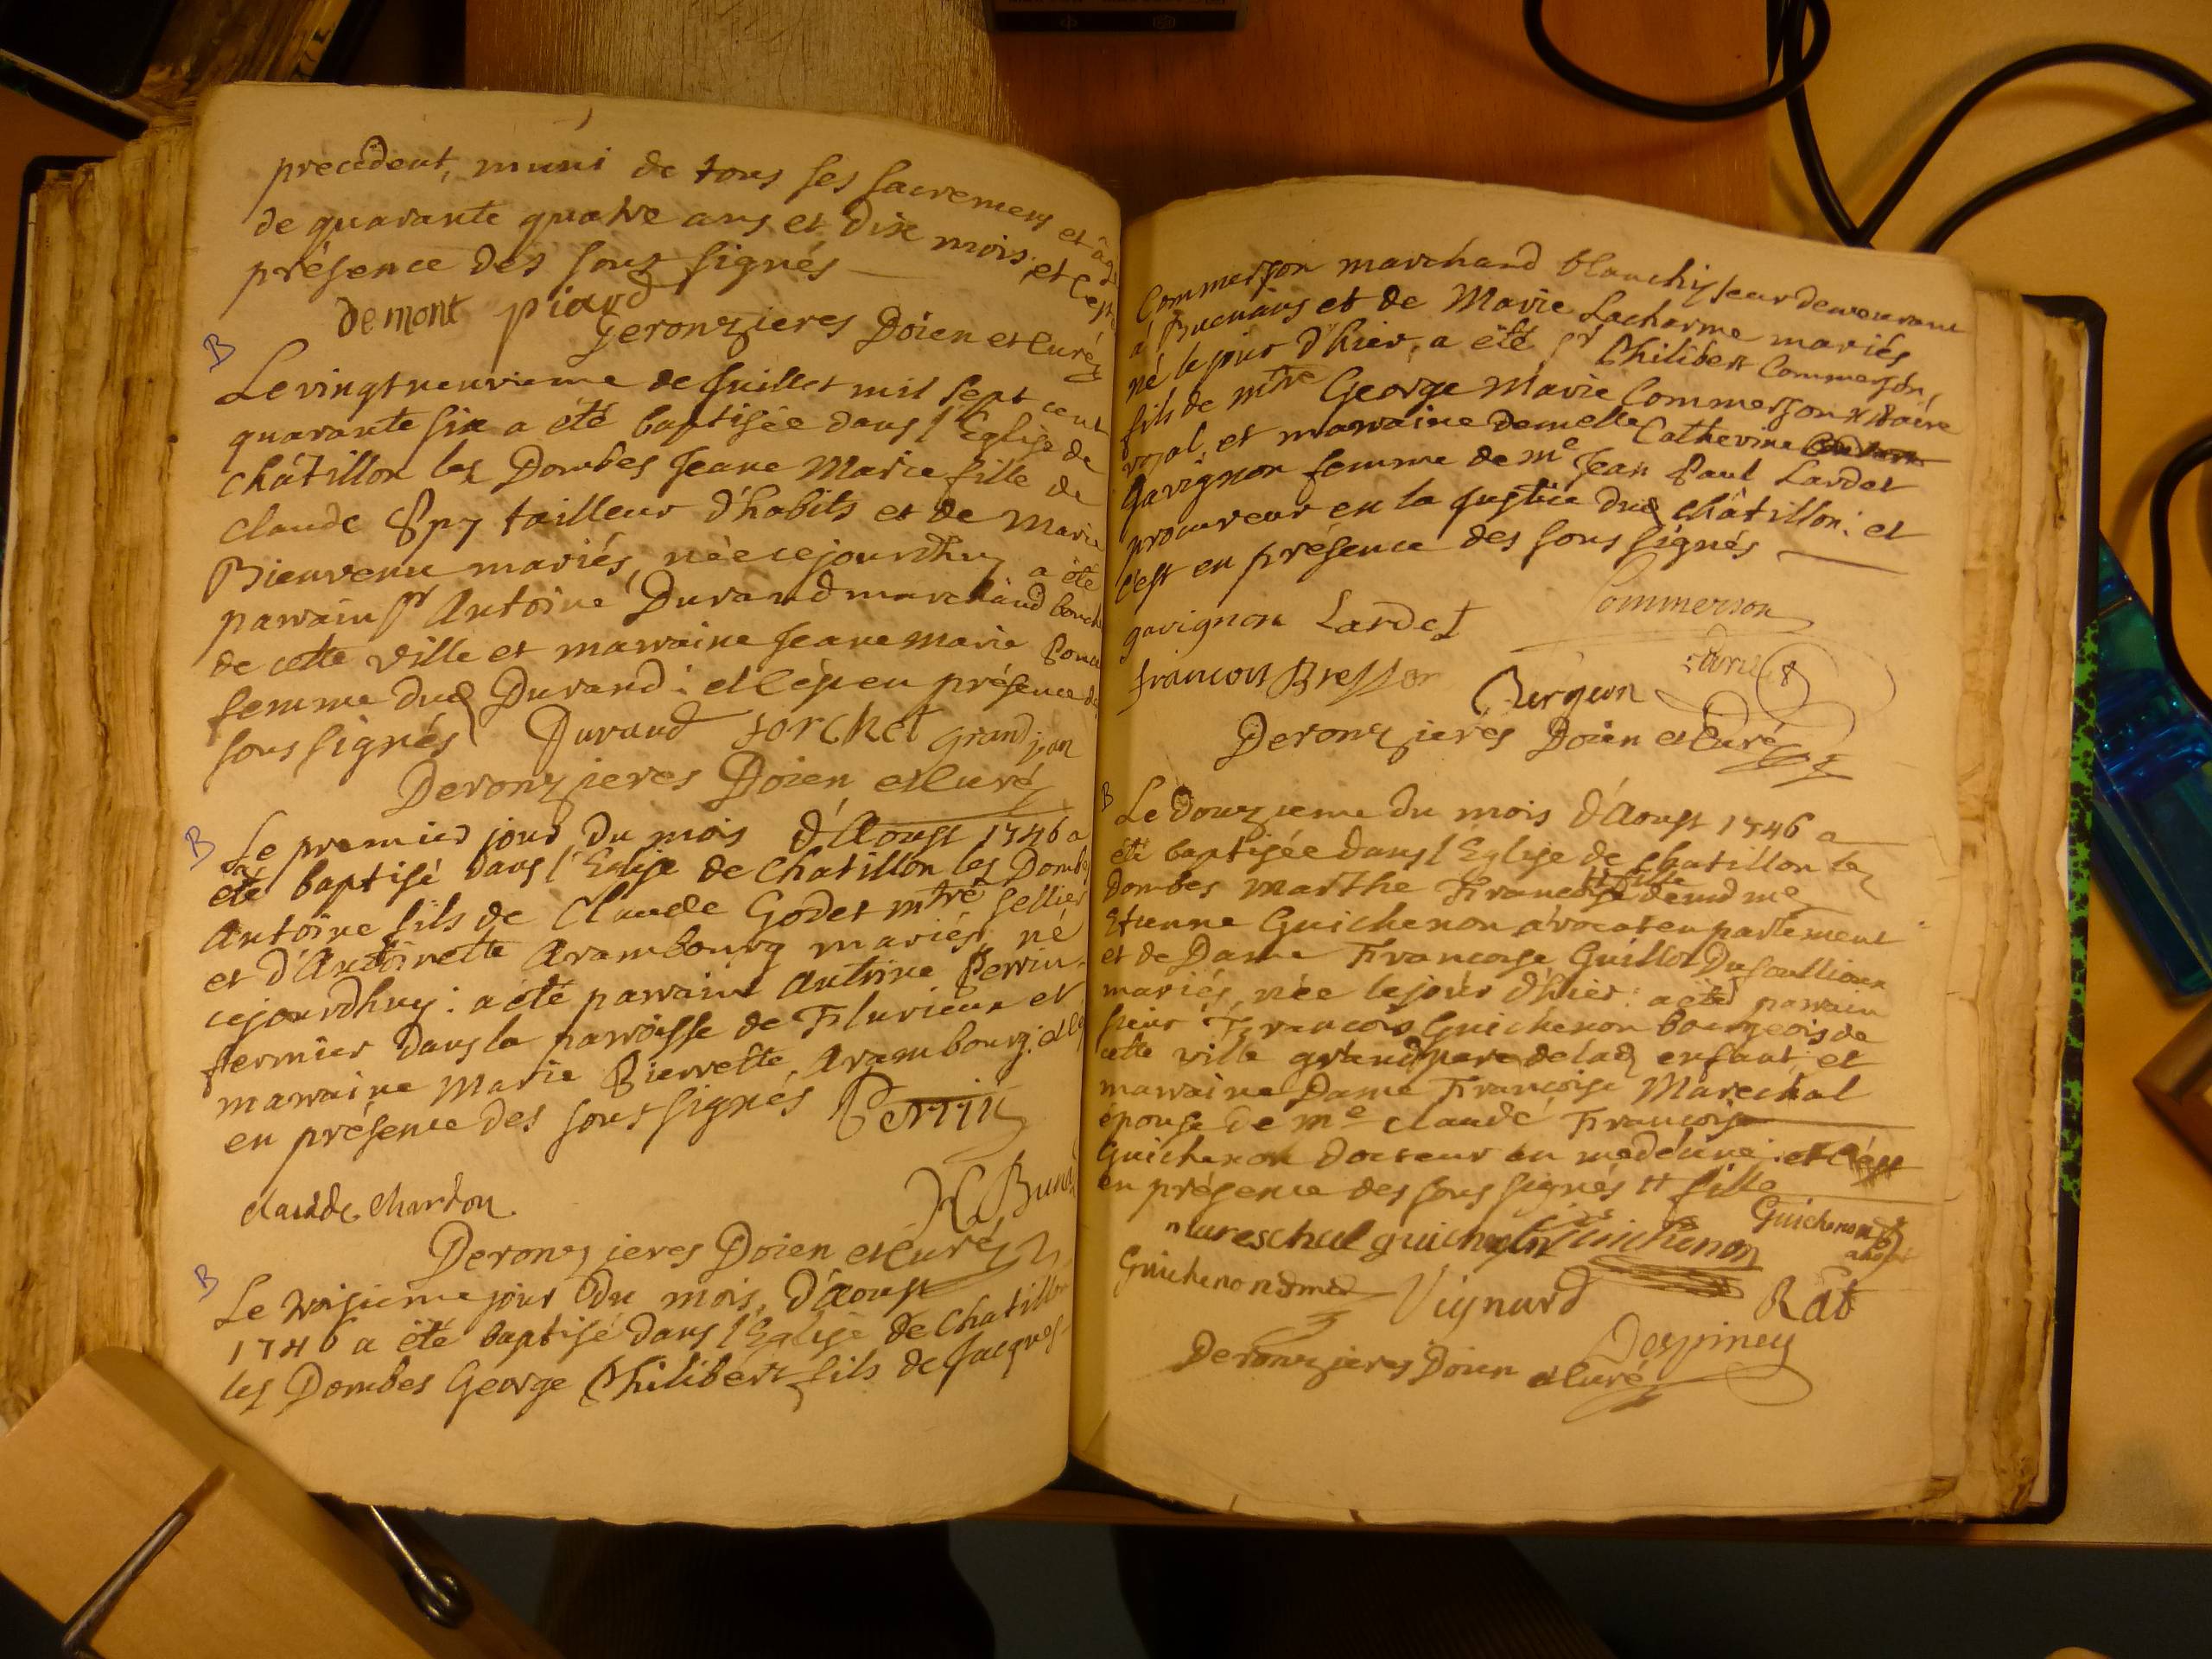 precedent, muni de tous ses sacremens et âgé
de quarante quatre ans et dix mois: et c'est
présence des sous signés
demont piard
Deronzieres Doïen et Curé
B
Le vingt neuvieme de Juillet mil sept cent
quarante six a été baptisée dans l'Eglise de
châtillon les Dombes Jeane Marie fille de
Claude Spy tailleur d'habits et de Marie
Bienvenu mariés, née cejourdhuy a été
parain sr Antoine Durand marchand bouch
de cette ville et maraine Jeane Marie
femme dud Durand: et c'est en présence de
sous signés Durand sorchet grand jean
Deronzieres Doïen et Curé
B
Le premier jour du mois d'Aoust 1746 a
été baptisé dans l'Eglise de Chatillon les Dombes
Antoine fils de Claude Godet mtre sellier
et d'Antoinette Arambourg mariés, né
cejourdhuy: a été parain Antoine Perrin
fermier dans la paroisse de Flurieux et
maraine Marie Pierrette Arambourg: et c
en présence des sous signés Perrin
claude chardon
Deronzieres Doïen et Curé
B
Le troisieme jour du mois d'Aoust
1746 a été baptisé dans l'Eglise de Chatillon
les Dombes George Philibert fils de Jacques
Commerson marchand blanchisseur demeurant
à Bucnans et de Marie Lacharme mariés
né le jour d'hier, a été pr Philibert Commerson,
fils de mtre George Marie Commerson Ntaire
royal, et maraine demelle Catherine
Gavignon femme de me Jean Paul Lardet
procureur en la Justice dud châtillon: et
c'est en présence des sous signés
Commerson
gavignon Lardet
francois Bresson
Bergeon
Deronzieres Doïen et Curé
B
Le Douzieme du mois d'Aoust 1746 a
été baptisée dans l'Eglise de chatillon les
Dombes Marthe Francoise de me
Etienne Guichenon avocat en parlement
et de Dame Francoise Guillot Dufoullioux
mariés, née le jour d'hier: a été parain
sieur Francois Guichenon bourgeois de
cette ville grand pere de lad enfant, et
maraine Dame Francoise Marechal
épouse de me claude Francois
Guichenon docteur en médecine: et c'est
en présence des sous signés # fille
mareschal guichenon Guichenon Guichenon
Guichenon dmed Vignard Rat
Despiney
Deronzieres Doïen et Curé